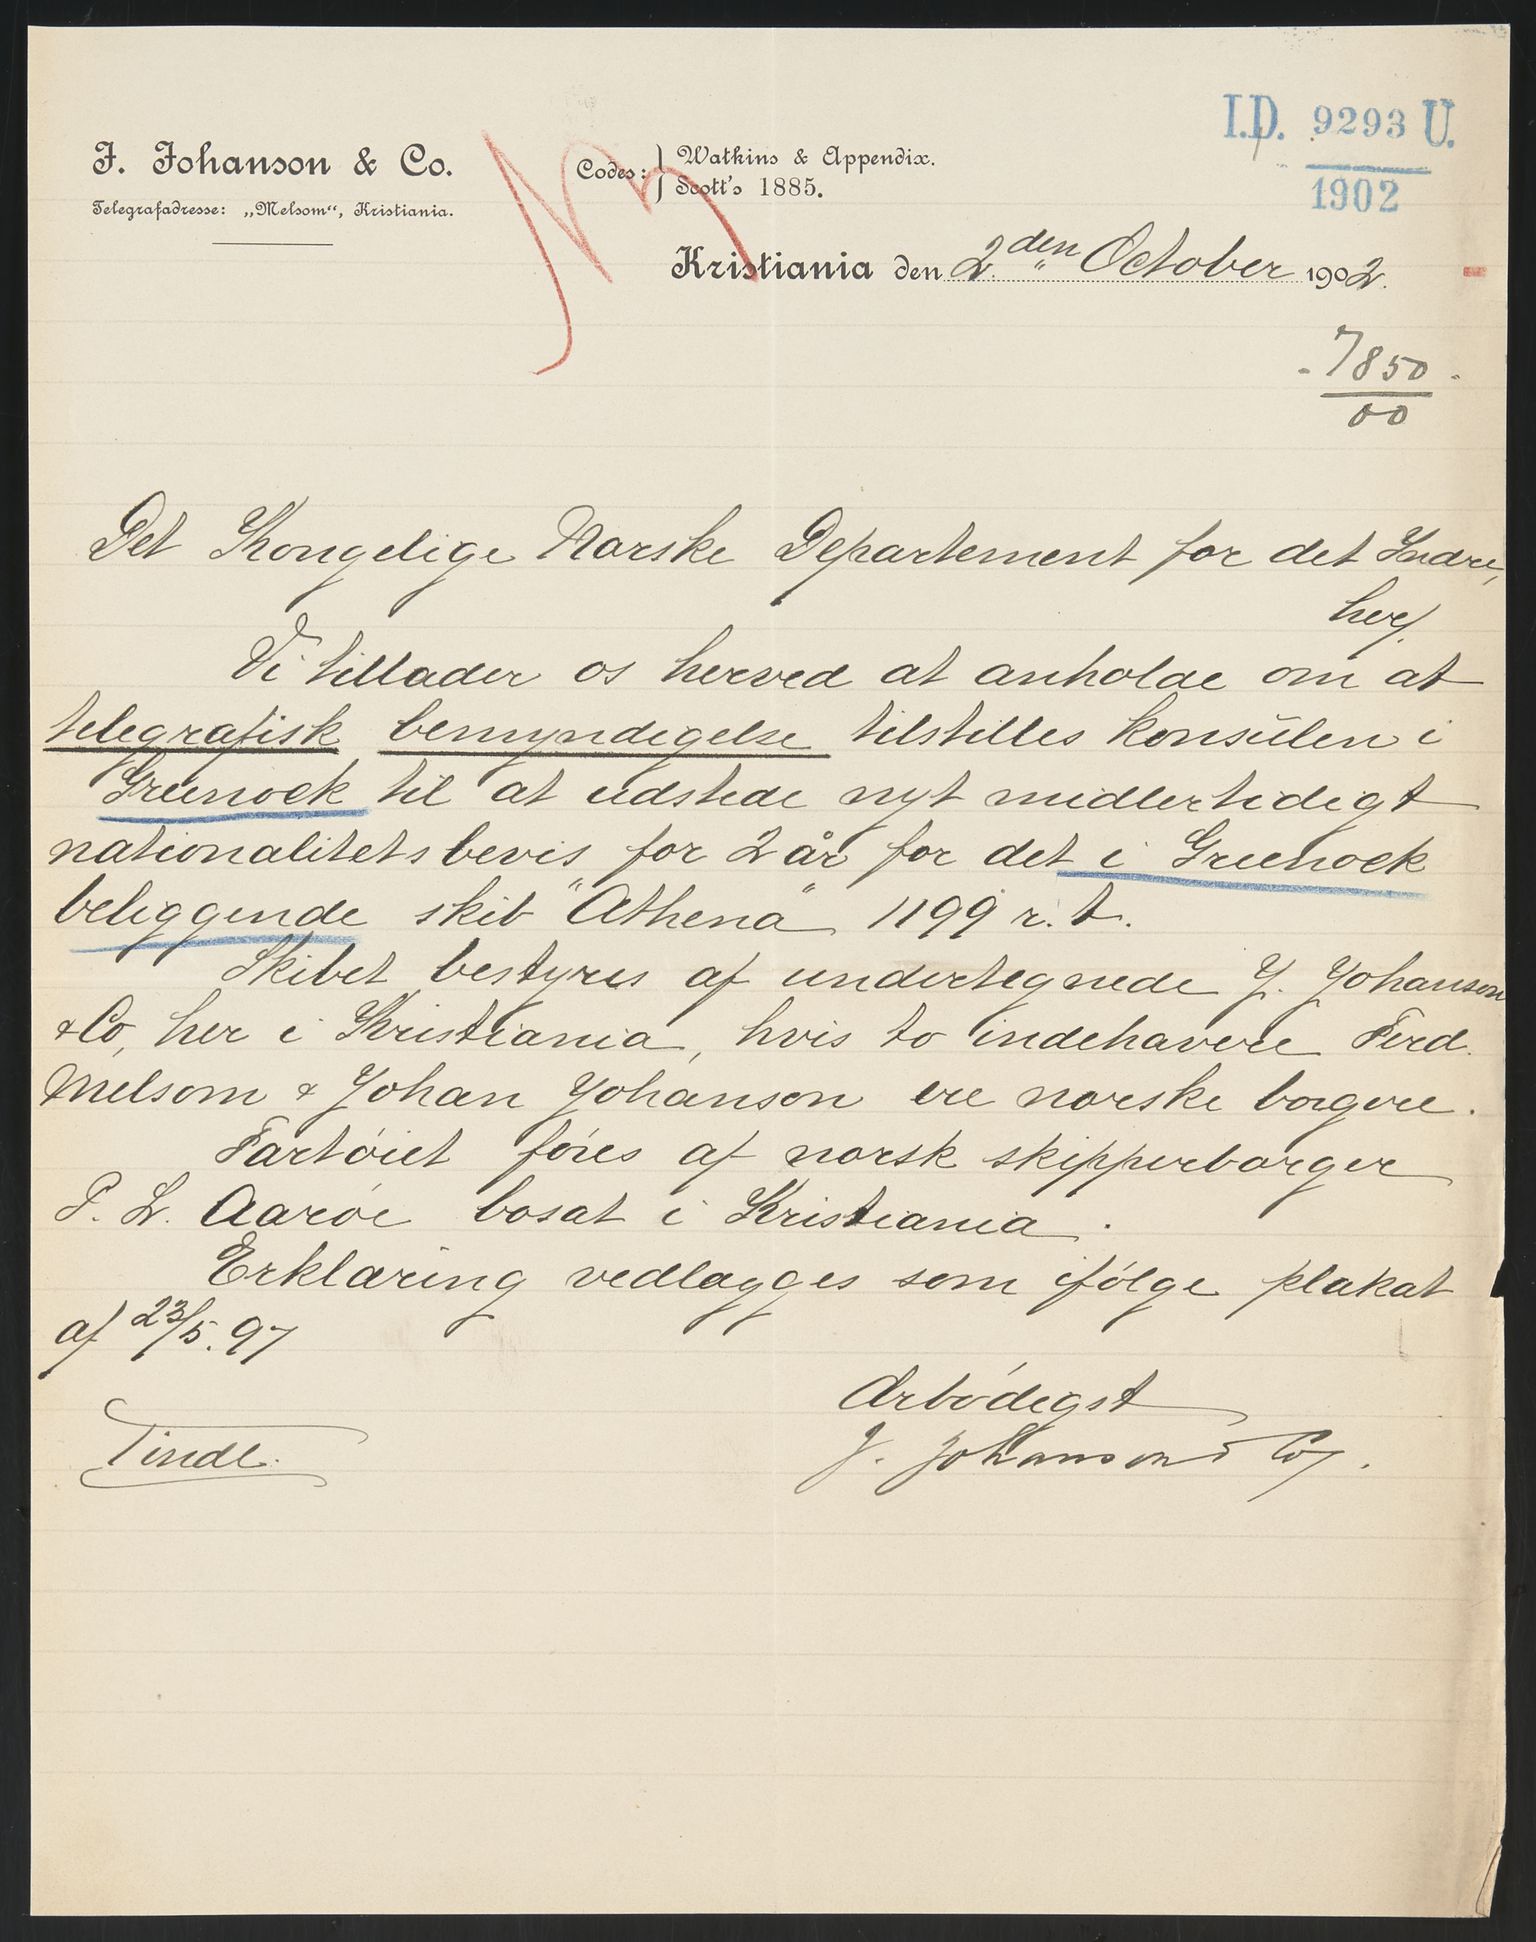 I.D. 9293 U.
1902
J. Johanson & Co.
Telegrafadresse: „Melsom“, Kristiania.
Codes: } Watkins & Appendix.
Scott's 1885.
Kristiania den 2den October 1902.
- 7850 -
00
Det Kongelige Norske Departement for det Indre,
her.
Vi tillader os herved at anholde om at
telegrafisk bemyndigelse tilstilles konsulen i
Greenock til at udstede nyt midlertidigt
nationalitetsbevis for 2 år for det i Greenock
beliggende skib "Athena" 1199 r. t.
Skibet bestyres af undertegnede J. Johanson
& Co, her i Kristiania, hvis to indehavere Ferd.
Melsom & Johan Johanson ere norske borgere.
Fartøiet føres af norsk skipperborger
P. L. Aarøe bosat i Kristiania.
Erklæring vedlægges som ifølge plakat
af 23/5. 97
Ærbødigst
J. Johanson & Co.